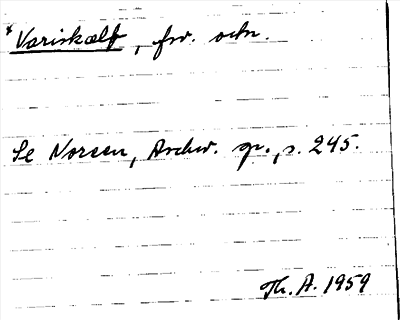 *Variskælf, fsv. ochn.
Se Noreen, Aschw. gr., s. 245.
Th. A. 1959